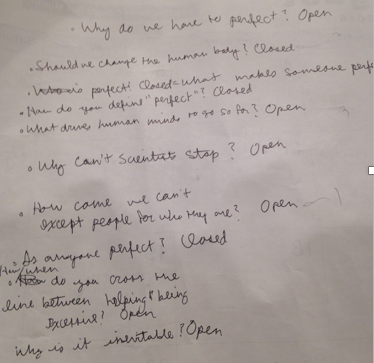 • Why do we have to perfect? Open
• Should we change the human body? Closed
• Who is perfect? Closed = what makes someone perfe
• How do you defind "perfect"? Closed
• What drives human minds to go so far? Open
• Why can't scientists stop? Open
• How come we can't
except people for who they are? Open
• Is anyone perfect? Closed
How/when
• do you cross the
line between helping & being
excessive? Open
Why is it inevitable? Open